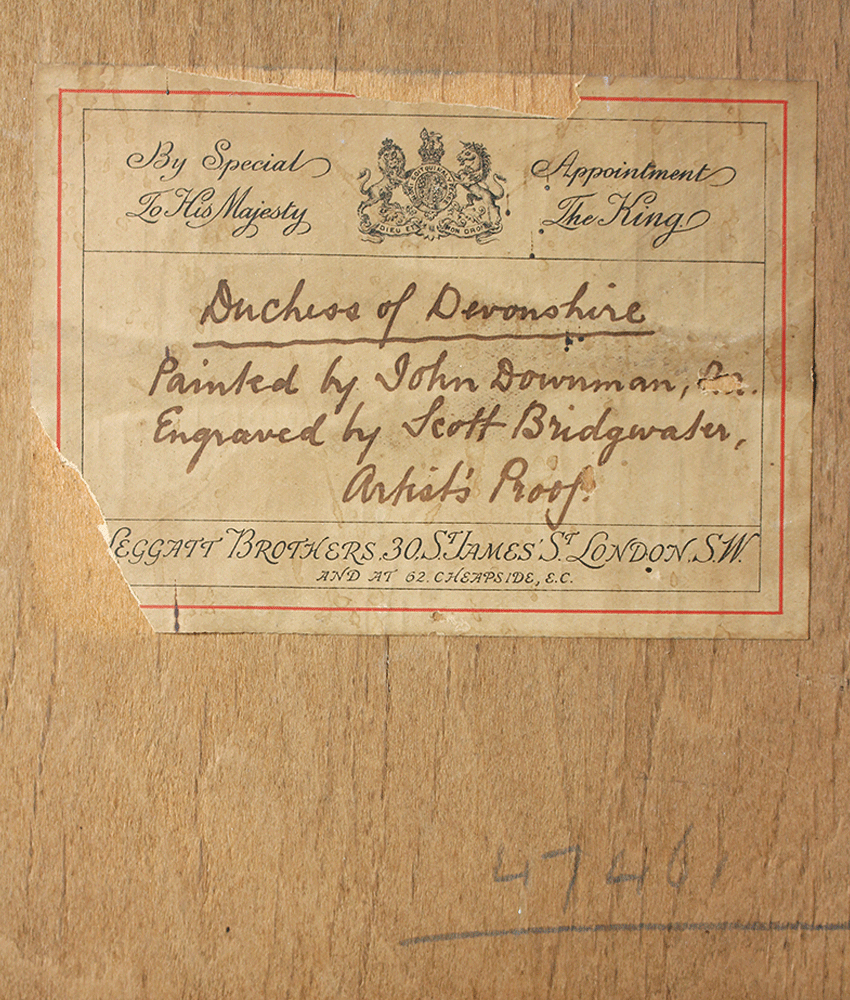 By Special Appointment
To His Majesty The King.
DIEU ET MON DROIT
Duchess of Devonshire
Painted by John Downman,
Engraved by Scott Bridgewater,
Artist's Proof.
LEGGATT BROTHERS, 30, ST JAMES' ST LONDON, S.W.
AND AT 62. CHEAPSIDE, E.C.